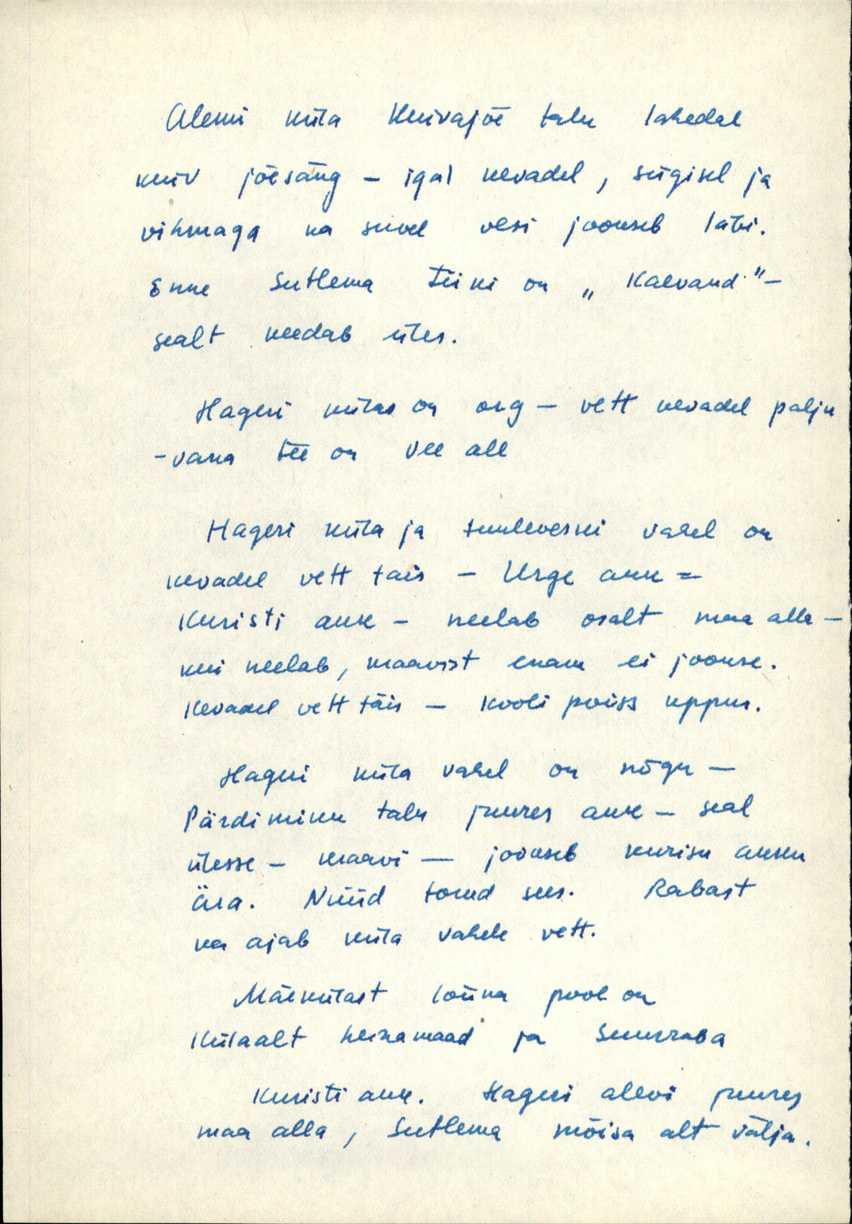 Alemi küla Kuivajõe talu lähedal
kuiv jõesäng – igal kevadel, sügisel ja
vihmaga ka suvel vesi jookseb läbi.
Enne Sutlema Tiiki on „Kaevand" –
sealt keedab üles.
Hageri külas on org – vett kevadel palju
– vana tee on vee all
Hageri küla ja Suureveski vahel on
kevadel vett täis – Urge auk =
Kuristi auk – neelab osalt maa alla –
kui neelab, kraavist enam ei jookse.
Kevadel vett täis – kooli poiss uppus.
Hageri küla vahel on nõgu –
Pärdimiku talu juures auk – seal
ülesse – kraavi – jookseb kurisu auku
ära. Nüüd torud sees. Rabast
ka ajab küla vahele vett.
Mäekülast lõuna pool on
Külaalt heinamaad ja Suurraba
Kuristi auk. Hageri alevi juures
maa alla, Sutlema mõisa alt välja.